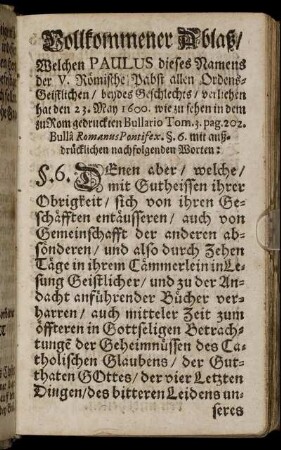 Vollkommener Ablaß/
Welchen PAULUS dieses Namens
der V. Römische Pabst allen Ordens-
Geistlichen / beydes Geschlechts / verliehen
hat den 23. May 1600. wie zu sehen in dem
zu Rom gedruckten Bullario Tom. 3. pag. 202.
Bullâ Romanus Pontifex. §. 6. mit auß-
drücklichen nachfolgenden Worten:
§. 6. DEnen aber / welche /
mit Gutheissen ihrer
Obrigkeit / sich von ihren Ge-
schäfften entäusseren / auch von
Gemeinschafft der anderen ab-
sönderen / und also durch Zehen
Täge in ihrem Cämmerlein in Le-
sung Geistlicher / und zu der An-
dacht anführender Bücher ver-
harren / auch mitteler Zeit zum
öffteren in Gottseligen Betrach-
tungē der Geheimnüssen des Ca-
tholischen Glaubens / der Gut-
thaten GOttes / der vier Letzten
Dingen / des bitteren Leidens un-
seres